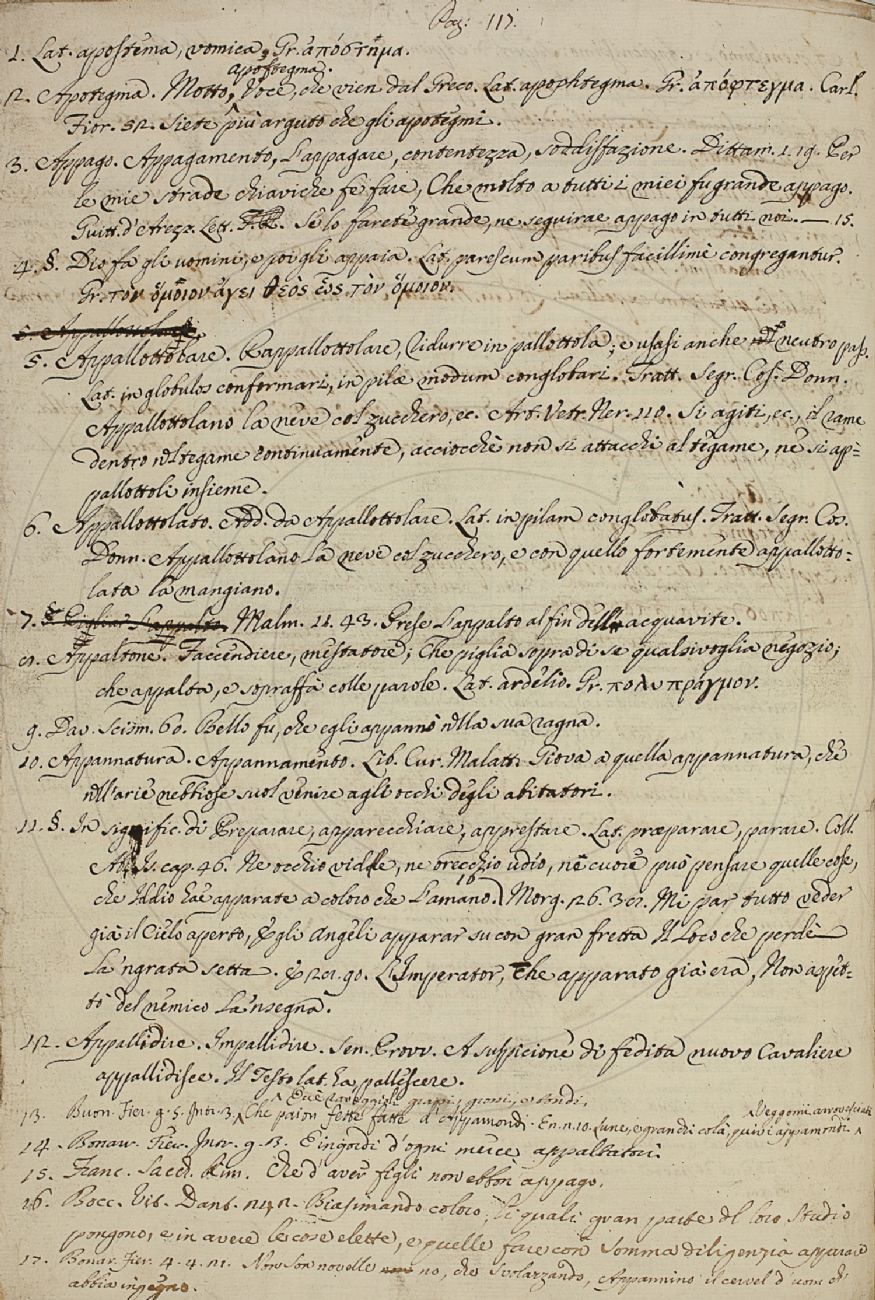 Pag. 117.
1. Lat. apostema, vomica, Gr. ἀπόστημα.
apoftegma.
2. Apotigma. Motto, Voce, che vien dal Greco. Lat. apophtegma. Gr. ἀπόφτεγμα. Carl.
Fior. 52. Siete più arguto che gli apotegmi.
3. Appago. Appagamento, L'appagare, contentezza, soddisfazione. Dittam. 1. 19. Per
le mie strade chiaviche fe fare, Che molto a tutti i miei fu grande appago.
Guitt. d'Arezz. Lett. Se lo farete grande, ne seguirae appago in tutti noi. — 15.
4. §. Dio fa gli uomini, e poi gli appaia. Lat. pares cum paribus facillime congregantur.
Gr. τὸν ὅμοιον ἄγει θεὸς ὡς τὸν ὅμοιον.
5. Appallottolare. Rappallottolare, Ridurre in pallottola; e usasi anche nel neutro pass.
Lat. in globulos conformari, in pilæ modum conglobari. Tratt. Segr. Cos. Donn.
Appallottolano la neve col zucchero, ec. Art. Vetr. Ner. 110. Si agiti, ec., il rame
dentro nel tegame continuamente, acciocchè non si attacchi al tegame, nè si ap=
pallottoli insieme.
6. Appallottolato. Add. da Appallottolare. Lat. in pilam conglobatus. Tratt. Segr. Cos.
Donn. Appallottolano la neve col zucchero, e con quello fortemente appallotto=
lata la mangiano.
7. § Pigliar l'appalto. Malm. 11. 43. Prese l'appalto al fin dell'acquavite.
8. Appaltone. Faccendiere, mestatore; Che piglia sopra di se qualsivoglia negozio;
che appalta, e sopraffà colle parole. Lat. ardelio. Gr. πολυπράγμον.
9. Dav. Scism. 60. Bello fu, che egli appannò nella sua ragna.
10. Appannatura. Appannamento. Lib. Cur. Malatt. Giova a quella appannatura, che
nell'arie nebbiose suol venire agli occhi degli abitatori.
11. §. In signific. di Preparare, apparecchiare, apprestare. Lat. præparare, parare. Coll.
Ab. Is. cap. 46. Ne occhio vidde, ne orecchio udio, nè cuore può pensare quelle cose,
che Iddio hae apparate a coloro che l'amano. Morg. 26. 38. Mi par tutto veder
già il Cielo aperto, E gli Angeli apparar su con gran fretta Il Loco che perdè
La 'ngrata setta. E 28. 90. L'Imperator, che apparato già era, Non aspet=
tò del nemico la 'nsegna.
12. Appallidire. Impallidire. Sen. Provv. A suspicione di fedita nuovo Cavaliere
appallidisce. Il Testo lat. ha pallescere.
13. Buon. Fier. 9. 5. Intr. 3. Che paion fette fatte d'Appamondi. En. n. 10. Lune, e grandi colà, quivi appamondi.
14. Bonar. Fier. Intr. 9. 13. E ingordi d'ogni merce appaltatori.
15. Franc. Sacch. Rim. Che d'aver figli non esson appago.
16. Bocc. Vit. Dant. 242. Biasimando coloro, li quali gran parte del loro studio
pongono, e in avere le cose elette, e quelle fare con somma diligenzia apparare
17. Bonar. Fier. 4. 4. 21. Non son novelle no, che svolazzando, Appannino il cervel d'uom ch'
abbia ingegno.